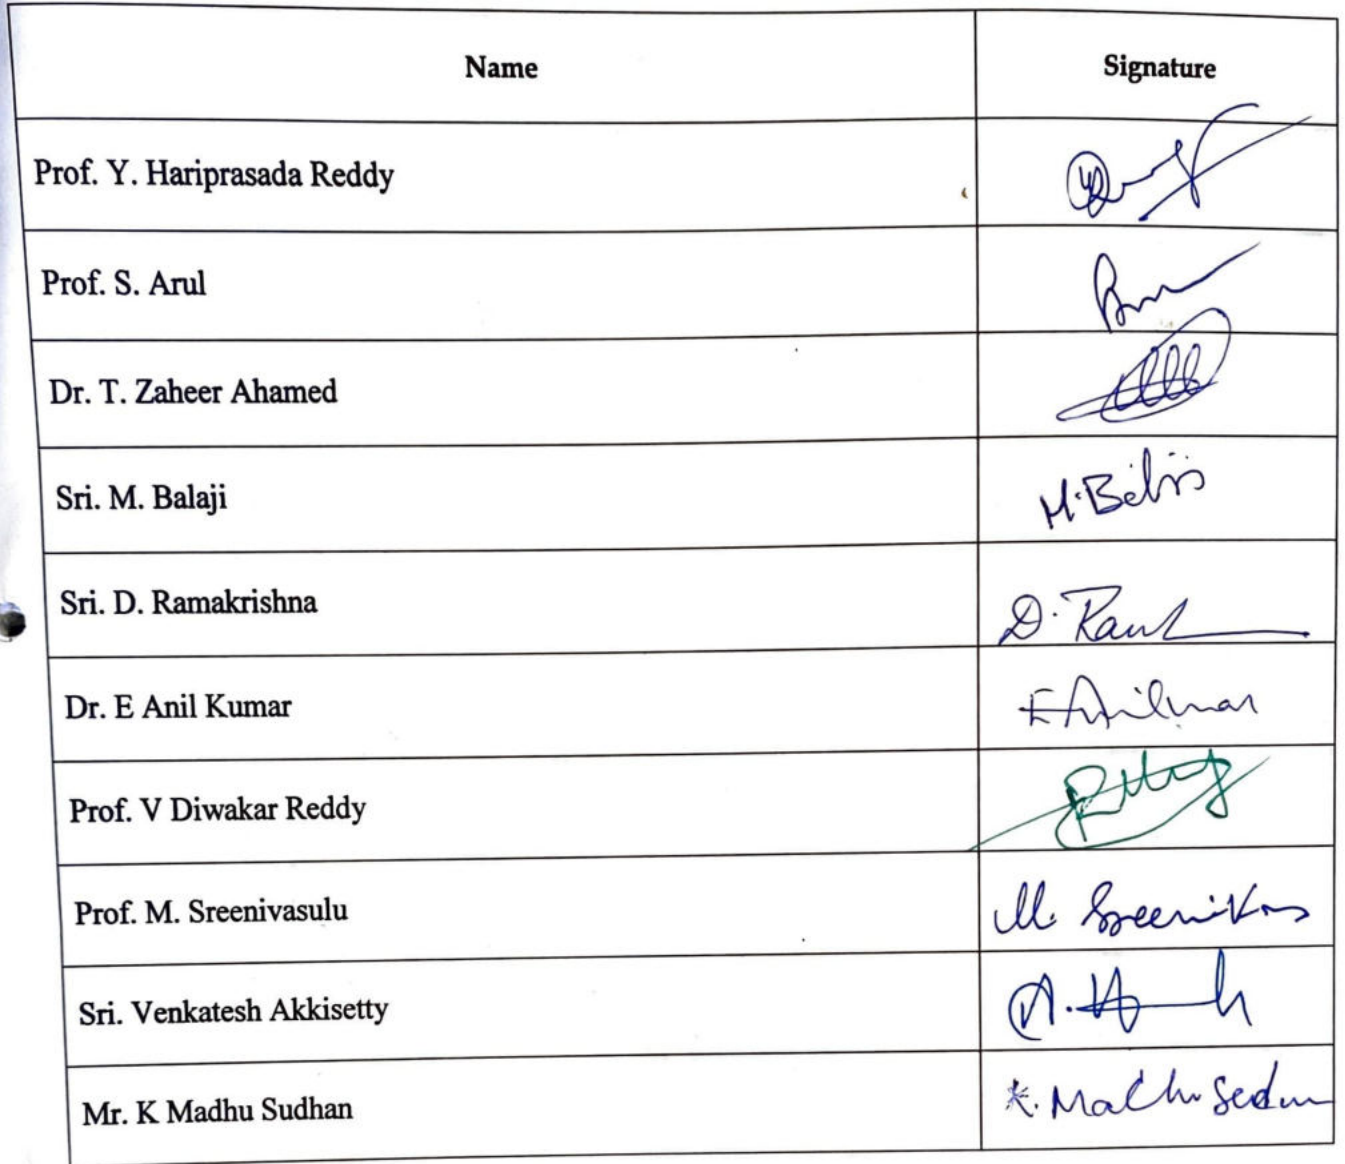 Name Signature
Prof. Y. Hariprasada Reddy
Prof. S. Arul
Dr. T. Zaheer Ahamed
Sri. M. Balaji M.
Sri. D. Ramakrishna D.
Dr. E Anil Kumar E
Prof. V Diwakar Reddy
Prof. M. Sreenivasulu M. Sreenivas
Sri. Venkatesh Akkisetty A.
Mr. K Madhu Sudhan K.